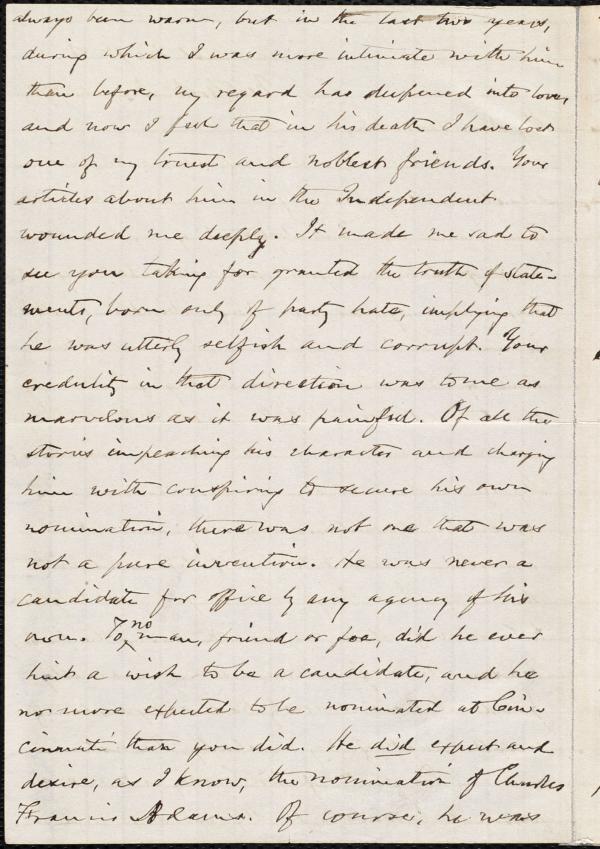 always been warm, but in the last two years,
during which I was more intimate with him
than before, my regard has deepened into love,
and now I feel that in his death I have lost
one of my truest and noblest friends. Your
articles about him in the Independent
wounded me deeply. It made me sad to
see you taking for granted the truth of state-
ments, born only of party hate, implying that
he was utterly selfish and corrupt. Your
credulity in that direction was to me as
marvelous as it was painful. Of all the
stories impeaching his character and charging
him with conspiring to secure his own
nomination, there was not one that was
not a pure invention. He was never a
candidate for office by any agency of his
own. To no man, friend or foe, did he ever
hint a wish to be a candidate, and he
no more expected to be nominated at Cin-
cinnati than you did. He did expect and
desire, as I know, the nomination of Charles
Francis Adams. Of course, he was